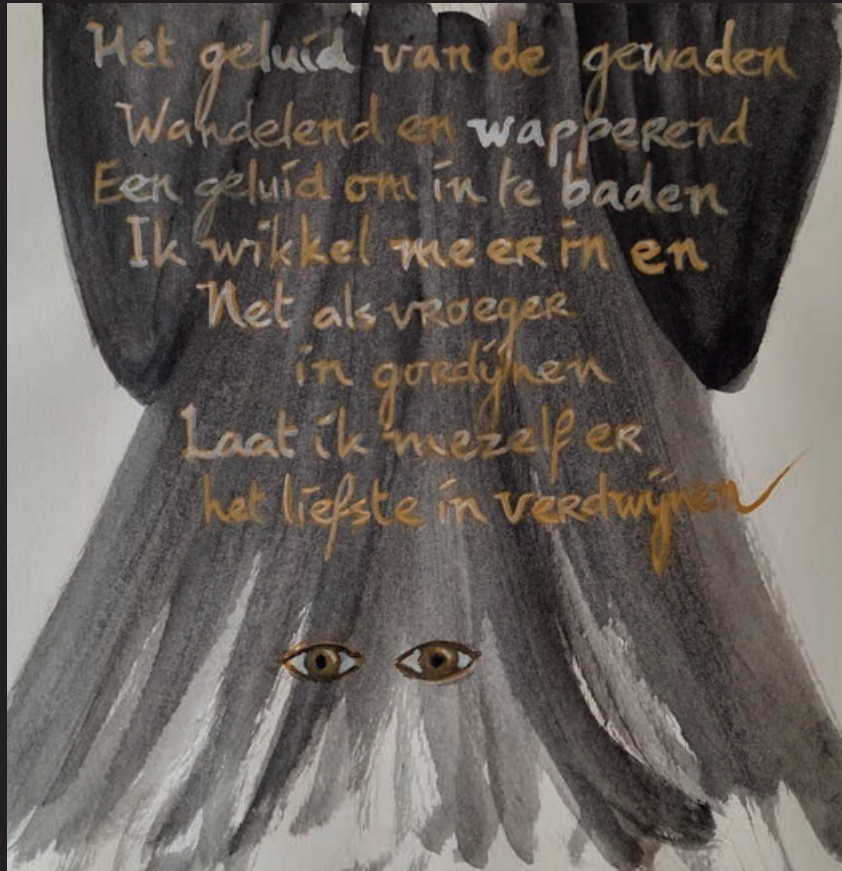 Het geluid van de gewaden
Wandelend en wapperend
Een geluid om in te baden
Ik wikkel me er in en
Net als vroeger
in gordijnen
Laat ik mezelf er
het liefste in verdwijnen